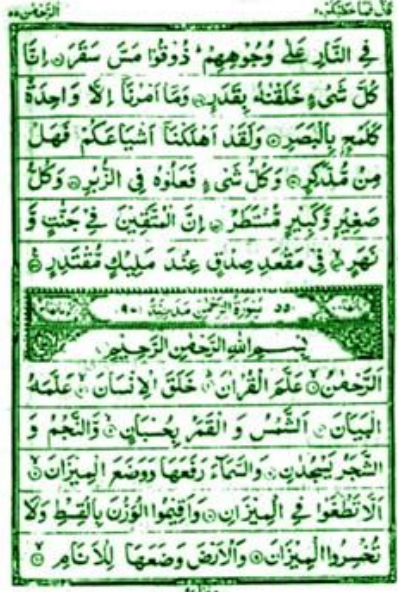 قال فما خطبكم ٢٧ الرحمن ٥٥
فِي النَّارِ عَلٰى وُجُوْهِهِمْ ؕ ذُوْقُوْا مَسَّ سَقَرَ ۝ اِنَّا
كُلَّ شَيْءٍ خَلَقْنٰهُ بِقَدَرٍ ۝ وَمَاۤ اَمْرُنَاۤ اِلَّا وَاحِدَةٌ
كَلَمْحٍۭ بِالْبَصَرِ ۝ وَلَقَدْ اَهْلَكْنَاۤ اَشْيَاعَكُمْ فَهَلْ
مِنْ مُّدَّكِرٍ ۝ وَكُلُّ شَيْءٍ فَعَلُوْهُ فِي الزُّبُرِ ۝ وَكُلُّ
صَغِيْرٍ وَّكَبِيْرٍ مُّسْتَطَرٌ ۝ اِنَّ الْمُتَّقِيْنَ فِيْ جَنّٰتٍ وَّ
نَهَرٍ ۝ فِيْ مَقْعَدِ صِدْقٍ عِنْدَ مَلِيْكٍ مُّقْتَدِرٍ ۝
٥٥ سُوْرَةُ الرَّحْمٰنِ مَدَنِيَّةٌ
بِسْمِ اللهِ الرَّحْمٰنِ الرَّحِيْمِ
اَلرَّحْمٰنُ ۝ عَلَّمَ الْقُرْاٰنَ ۝ خَلَقَ الْاِنْسَانَ ۝ عَلَّمَهُ
الْبَيَانَ ۝ اَلشَّمْسُ وَ الْقَمَرُ بِحُسْبَانٍ ۝ وَّالنَّجْمُ وَ
الشَّجَرُ يَسْجُدٰنِ ۝ وَالسَّمَآءَ رَفَعَهَا وَوَضَعَ الْمِيْزَانَ ۝
اَلَّا تَطْغَوْا فِي الْمِيْزَانِ ۝ وَاَقِيْمُوا الْوَزْنَ بِالْقِسْطِ وَلَا
تُخْسِرُوا الْمِيْزَانَ ۝ وَالْاَرْضَ وَضَعَهَا لِلْاَنَامِ ۝